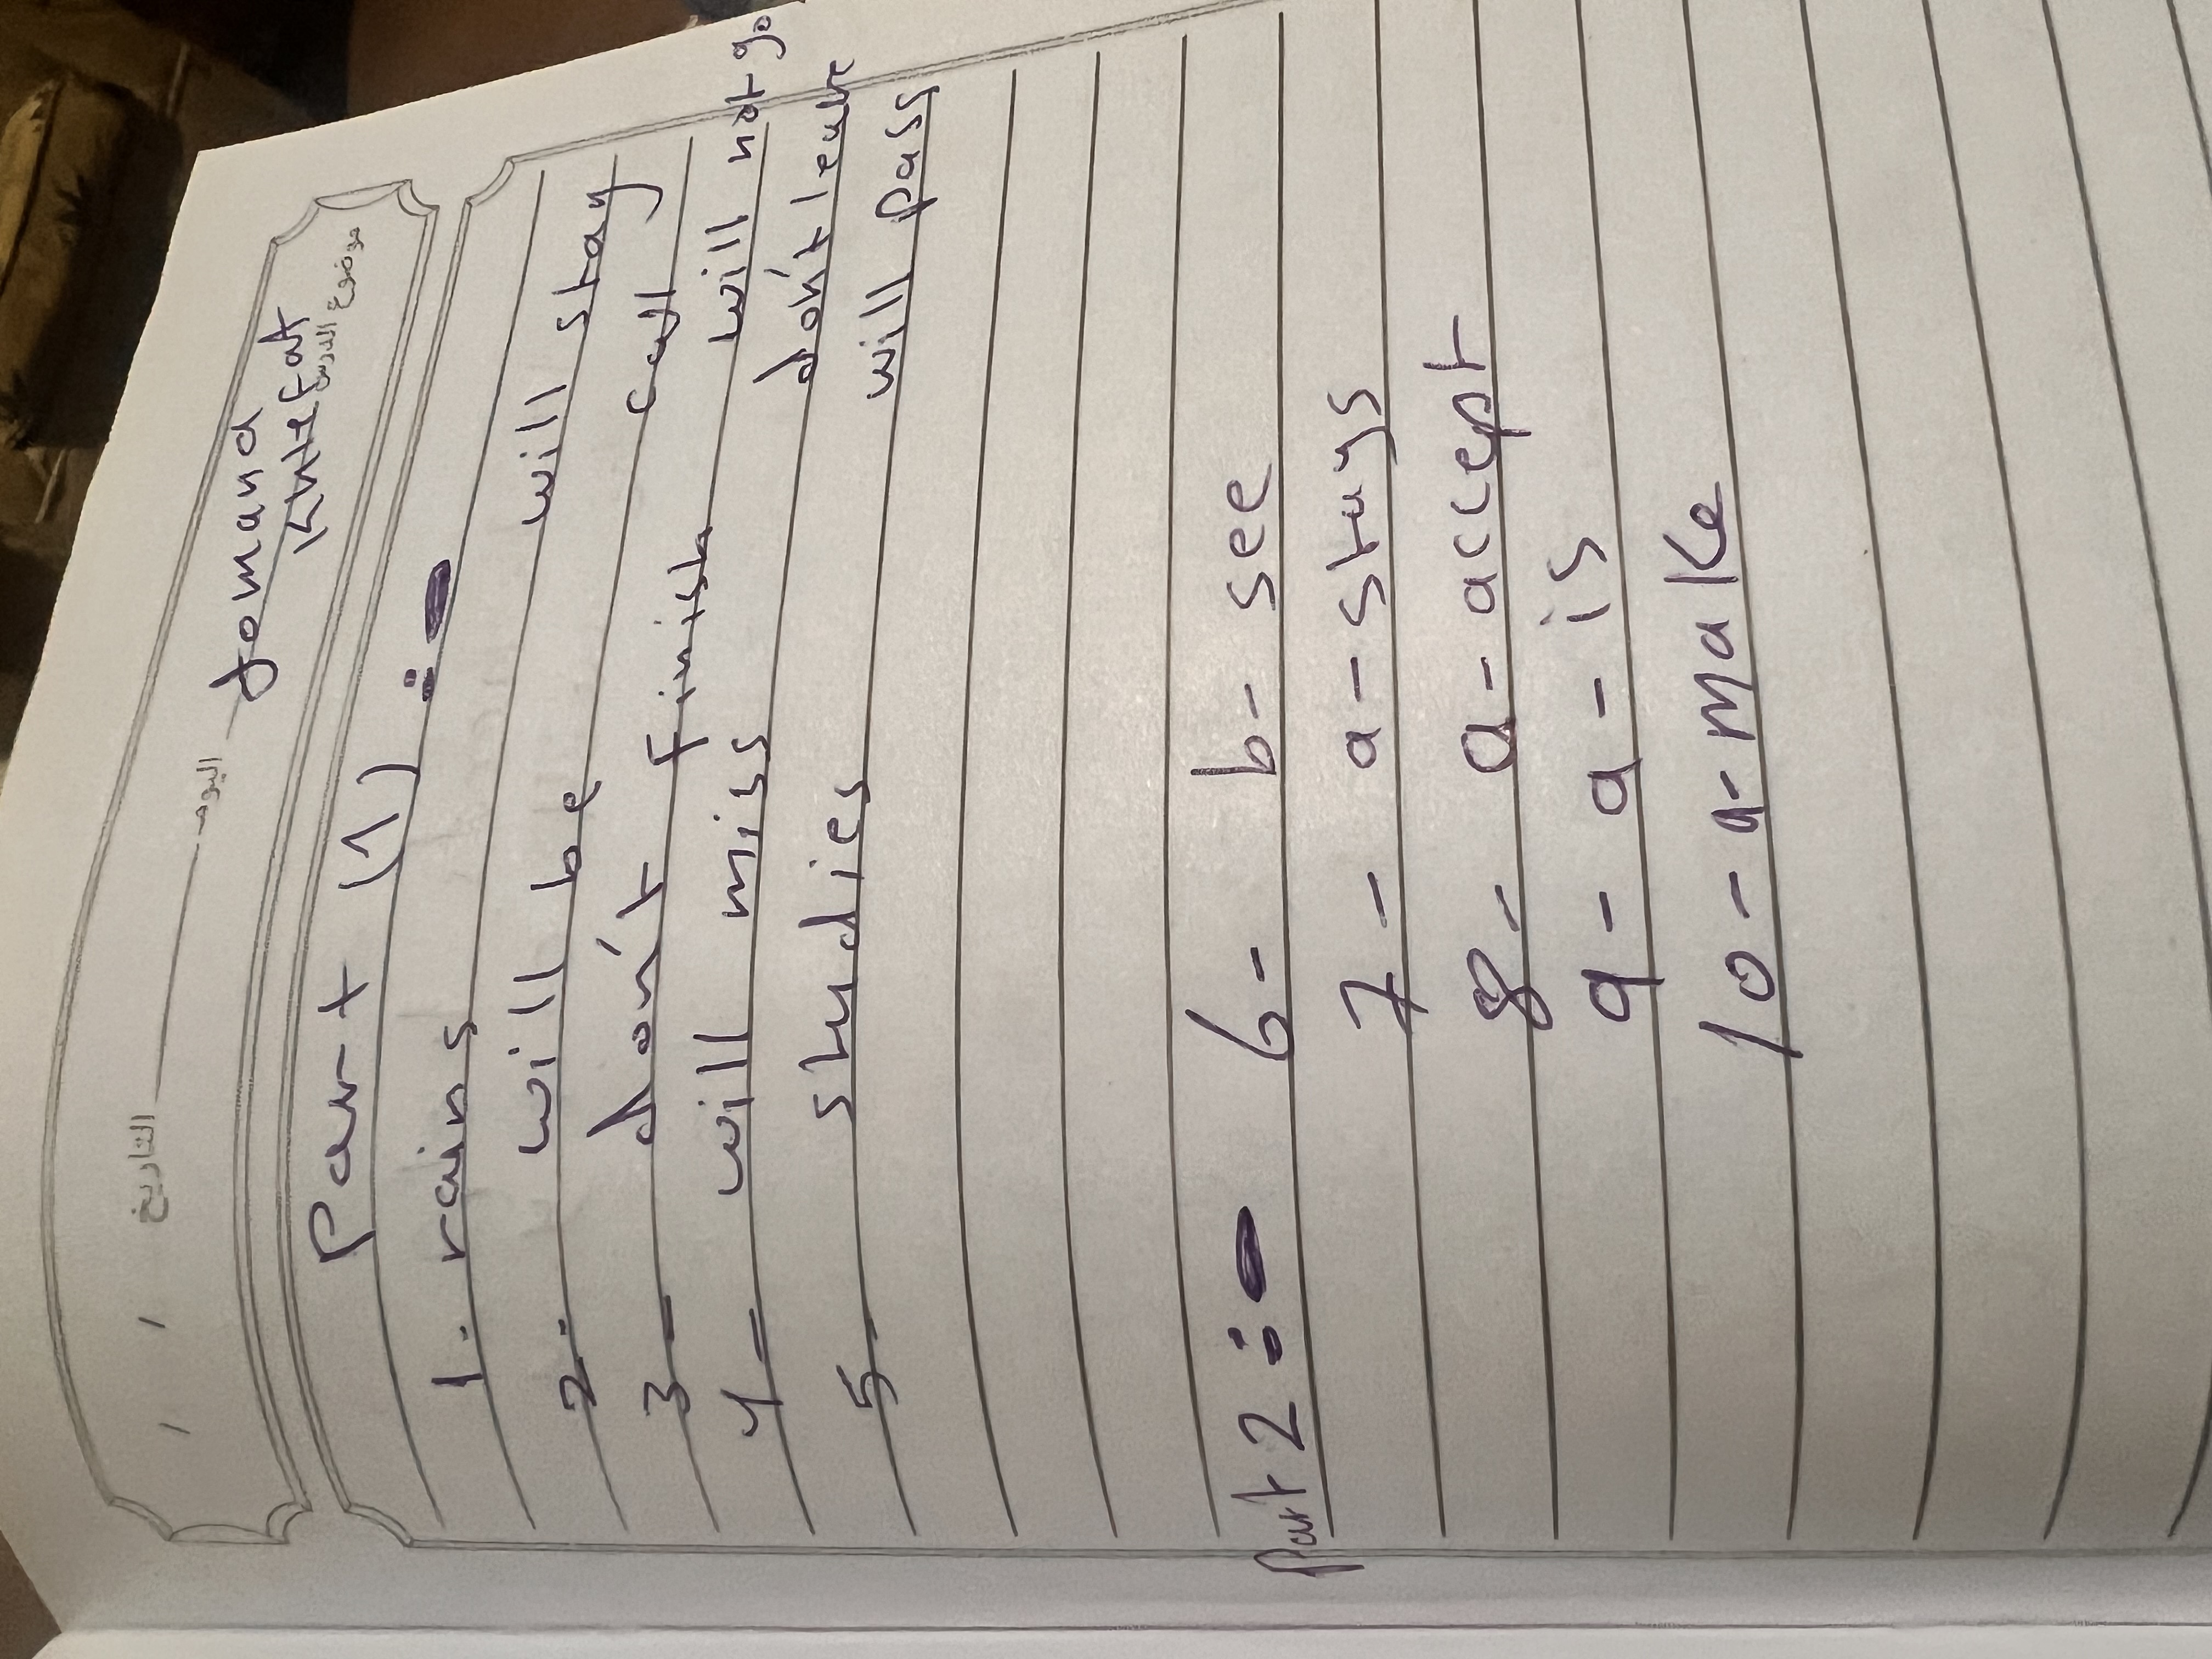 التاريخ / / اليوم Jomand
موضوع الدرس Khlefat
Part (1) :-
1- rains will stay
2- will be call
3- don't finish will not go
4- will miss don't leave
5- studies will pass
Part 2 :- 6- b- see
7- a- stays
8- a- accept
9- a- is
10- a- make